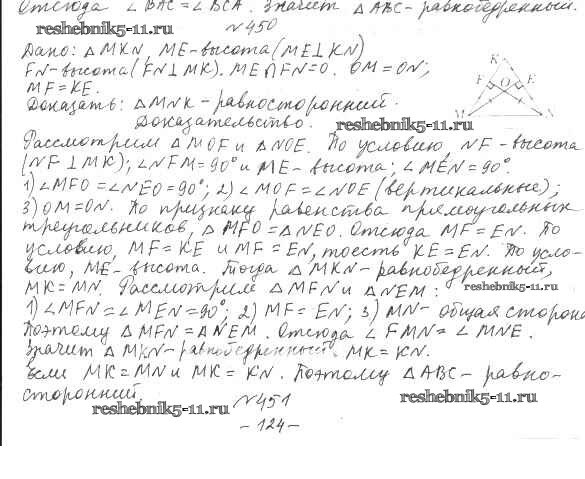 Отсюда ∠BAC = ∠BCA. Значит △ABC - равнобедренный.
reshebnik5-11.ru
№450
Дано: △MKN, ME-высота (ME⊥KN)
FN-высота (FN⊥MK). ME∩FN=O. OM=ON;
MF=KE.
Доказать: △MNK - равносторонний.
Доказательство. reshebnik5-11.ru
K
F O E
M N
Рассмотрим △MOF и △NOE. По условию, NF - высота
(NF⊥MK); ∠NFM=90° и ME - высота; ∠MEN=90°.
1) ∠MFO=∠NEO=90°; 2) ∠MOF=∠NOE (вертикальные);
3) OM=ON. По признаку равенства прямоугольных
треугольников, △MFO=△NEO. Отсюда MF=EN. По
условию, MF=KE и MF=EN, тоесть KE=EN. По усло-
вию, ME-высота. Тогда △MKN-равнобедренный,
MK=MN. Рассмотрим △MFN и △NEM: reshebnik5-11.ru
1) ∠MFN=∠MEN=90°; 2) MF=EN; 3) MN- общая сторона
Поэтому △MFN=△NEM. Отсюда ∠FMN=∠MNE.
Значит △MKN-равнобедренный MK=KN.
Если MK=MN и MK=KN. Поэтому △ABC- равно-
сторонний.
reshebnik5-11.ru №451 reshebnik5-11.ru
-124-